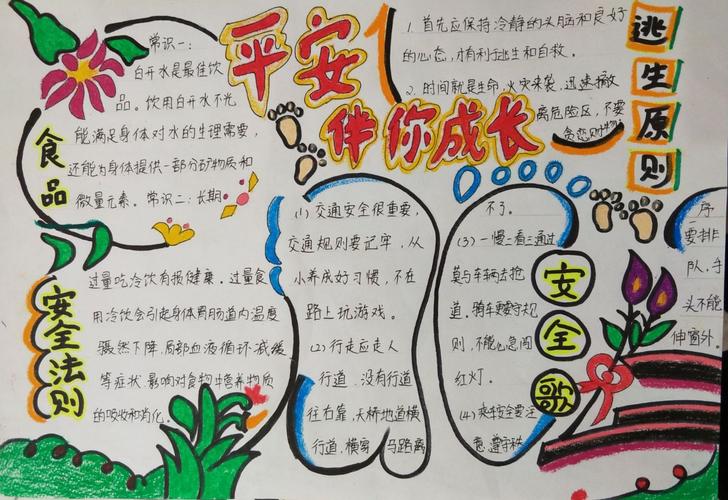 平安
伴你成长
食品
安全法则
常识一：
白开水是最佳饮
品。饮用白开水不光
能满足身体对水的生理需要，
还能为身体提供一部分矿物质和
微量元素。常识二：长期
过量吃冷饮有损健康。过量食
用冷饮会引起身体胃肠道内温度
骤然下降，局部血液循环减缓
等症状，影响对食物中营养物质
的吸收和消化。
逃生原则
1. 首先应保持冷静的头脑和良好
的心态，才有利于逃生和自救。
2. 时间就是生命，火灾来袭，迅速撤
离危险区，不要
贪恋财物
安全歌
(1) 交通安全很重要，
交通规则要记牢，从
小养成好习惯，不在
路上玩游戏。
(2) 行走应走人
行道，没有行道
往右靠，天桥地道横
行道，横穿马路离
不了。
(3) 一慢二看三通过
莫与车辆去抢
道。骑车更要守规
则，不能心急闯
红灯。
(4) 乘车安全要注
意，遵守秩
序
要排
队，手
头不能
伸窗外。